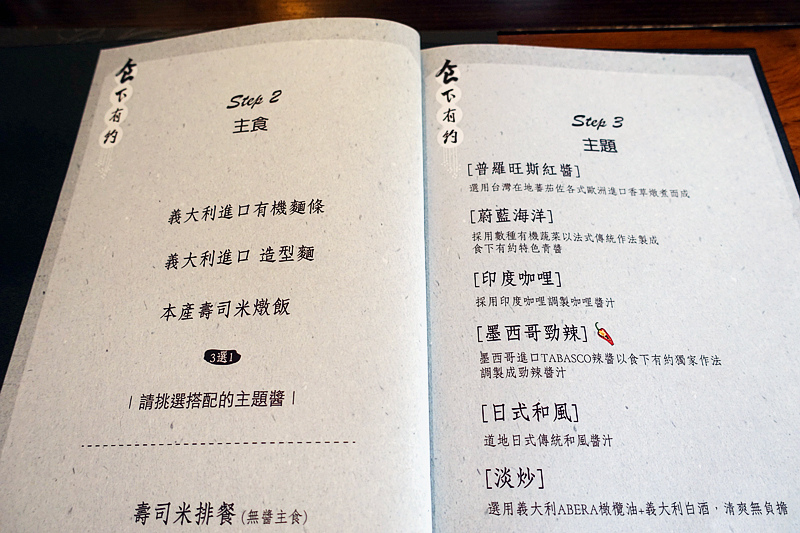 食下有約
Step 2
主食
義大利進口有機麵條
義大利進口 造型麵
本產壽司米燉飯
3選1
|請挑選搭配的主題醬|
壽司米排餐(無醬主食)
食下有約
Step 3
主題
[普羅旺斯紅醬]
選用台灣在地蕃茄佐各式歐洲進口香草燉煮而成
[蔚藍海洋]
採用數種有機蔬菜以法式傳統作法製成
食下有約特色青醬
[印度咖哩]
採用印度咖哩調製咖哩醬汁
[墨西哥勁辣]
墨西哥進口TABASCO辣醬以食下有約獨家作法
調製成勁辣醬汁
[日式和風]
道地日式傳統和風醬汁
[淡炒]
選用義大利ABERA橄欖油+義大利白酒，清爽無負擔